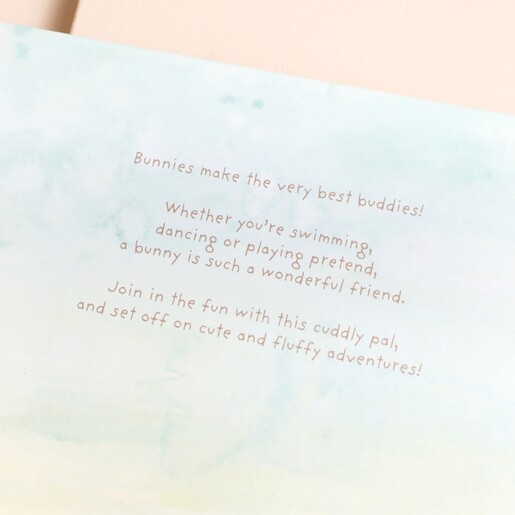 Bunnies make the very best buddies!
Whether you're swimming,
dancing or playing pretend,
a bunny is such a wonderful friend.
Join in the fun with this cuddly pal,
and set off on cute and fluffy adventures!